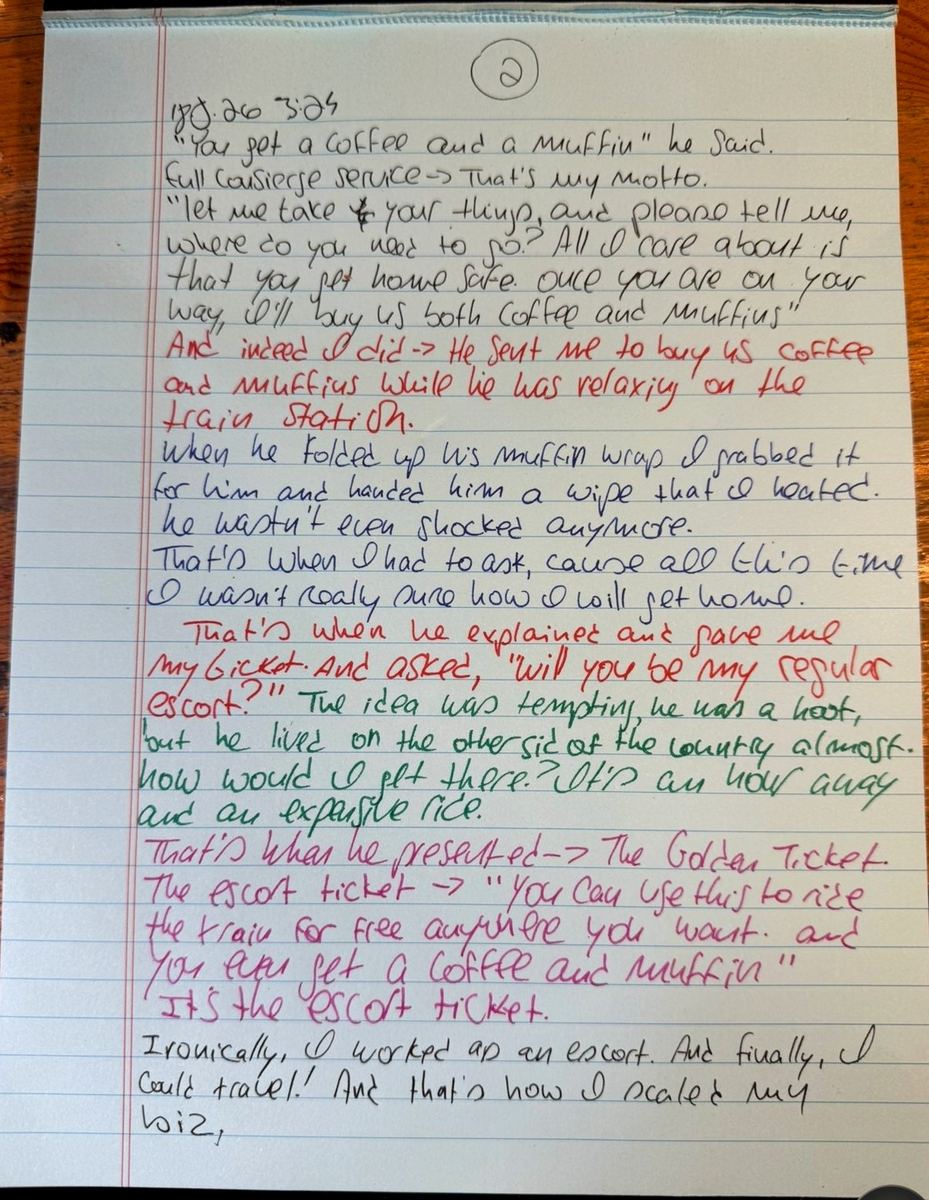 2
18J.26 3:24
"You get a coffee and a muffin" he said.
Full Cousierge service -> That's my motto.
"let me take your things, and please tell me,
where do you need to go? All I care about is
that you get home safe. once you are on your
way, I'll buy us both coffee and muffins"
And indeed I did -> He sent me to buy us coffee
and muffins while he was relaxing on the
train station.
When he folded up his muffin wrap I grabbed it
for him and handed him a wipe that I heated.
he wastn't even shocked anymore.
That's when I had to ask, cause all this time
I wasn't realy sure how I will get home.
That's when he explained and gave me
my ticket. And asked, "will you be my regular
escort?" The idea was tempting, he was a hoot,
but he lived on the other sid of the country almost.
how would I get there? It's an hour away
and an expensive ride.
That's when he presented -> The Golden Ticket.
The escort ticket -> "You can use this to ride
the train for free anywhere you want. and
you even get a coffee and muffin"
It's the escort ticket.
Ironically, I worked as an escort. And finally, I
could travel! And that's how I scaled my
biz,